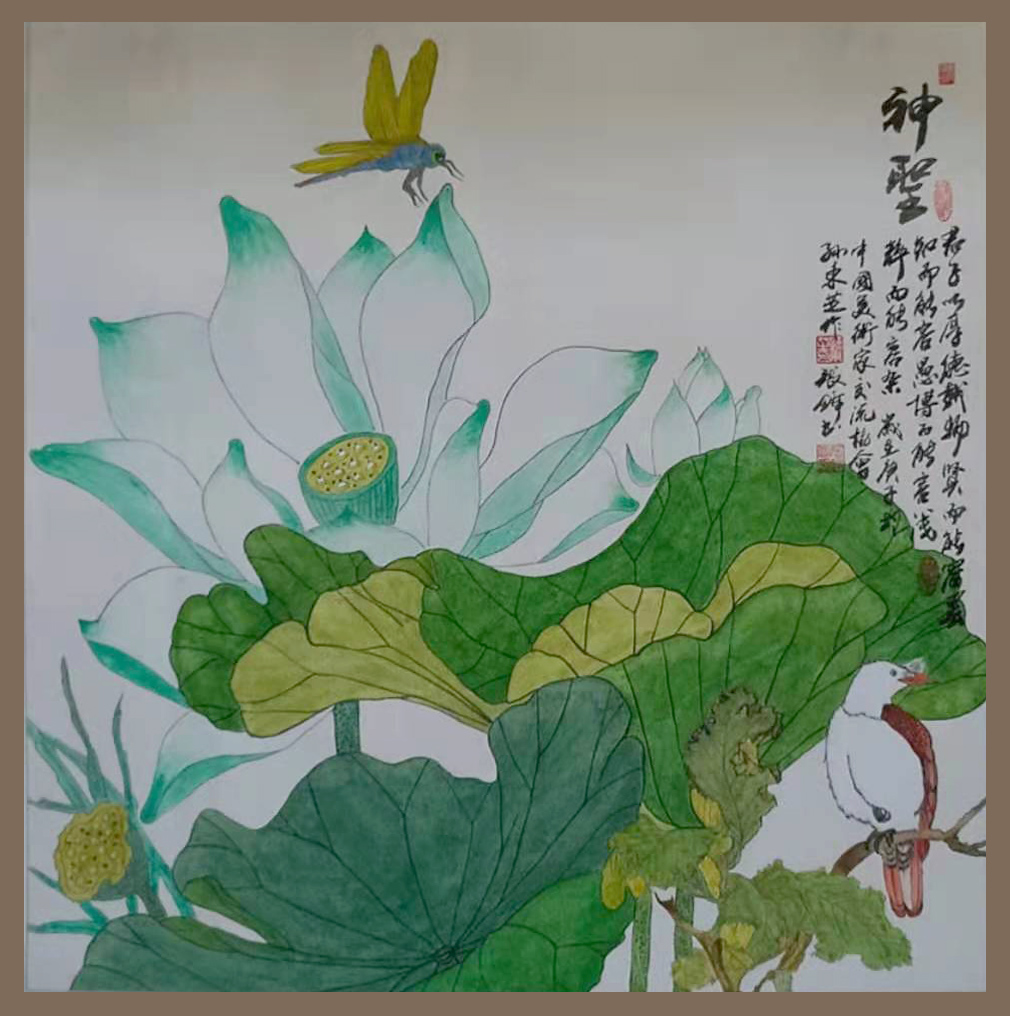 神聖
君子以厚德載物 賢而能容
知而能容愚 博而能容淺
粹而能容雜 歲在庚子
中國美術家交流協會
孫東芝作